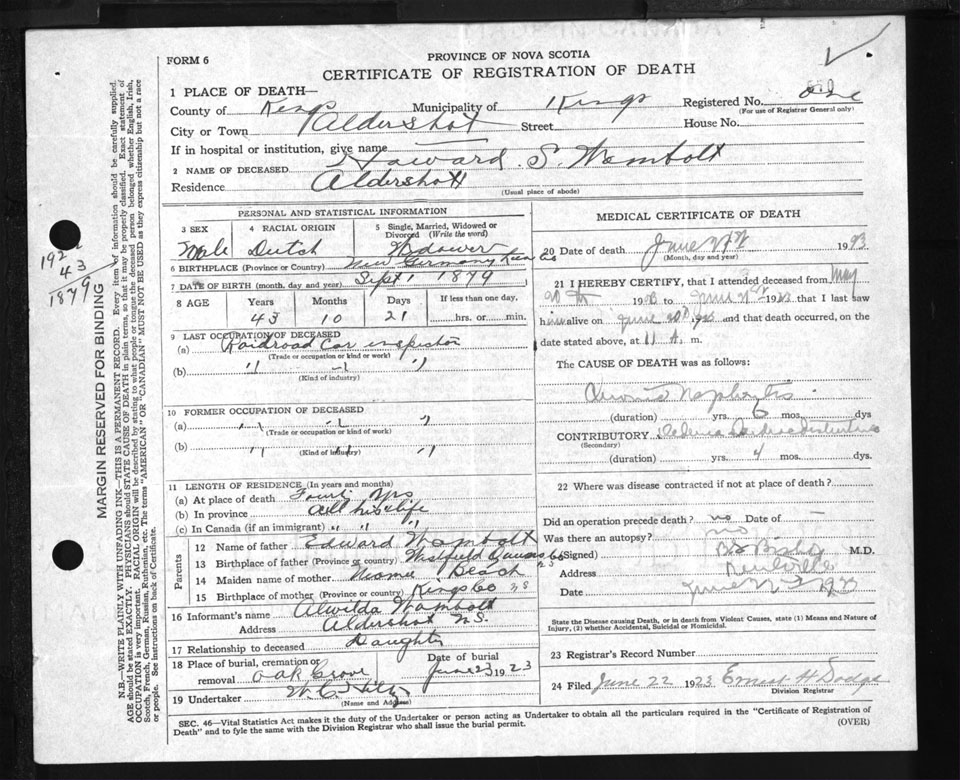 FORM 6
PROVINCE OF NOVA SCOTIA
CERTIFICATE OF REGISTRATION OF DEATH
1 PLACE OF DEATH—
County of Kings Municipality of Kings Registered No.
(For use of Registrar General only)
City or Town Aldershot Street House No.
If in hospital or institution, give name
2 NAME OF DECEASED Howard S. Wambolt
Residence Aldershott
(Usual place of abode)
PERSONAL AND STATISTICAL INFORMATION
3 SEX 4 RACIAL ORIGIN 5 Single, Married, Widowed or Divorced (Write the word)
Male Dutch Widower
6 BIRTHPLACE (Province or Country) New Germany Lun Co
7 DATE OF BIRTH (month, day and year) Sept 1 1879
8 AGE Years Months Days If less than one day,
43 10 21 hrs. or min.
9 LAST OCCUPATION OF DECEASED
(a) Railroad Car inspector
(Trade or occupation or kind or work)
(b) " " "
(Kind of industry)
10 FORMER OCCUPATION OF DECEASED
(a) " " "
(Trade or occupation or kind of work)
(b) " " "
(Kind of industry)
11 LENGTH OF RESIDENCE (In years and months)
(a) At place of death Four yrs
(b) In province all his life
(c) In Canada (if an immigrant) " " "
Parents
12 Name of father Edward Wambolt
13 Birthplace of father (Province or country) Westfield Queens Co NS
14 Maiden name of mother Beach
15 Birthplace of mother (Province or country) Kings Co NS
16 Informant's name Alwilda Wambolt
Address Aldershot N.S.
17 Relationship to deceased Daughter
18 Place of burial, cremation or removal Oak Grove Date of burial June 23 1923
19 Undertaker
(Name and Address)
MEDICAL CERTIFICATE OF DEATH
20 Date of death June 1923
(Month, day and year)
21 I HEREBY CERTIFY, that I attended deceased from May
1923 to June 1923 that I last saw
him alive on June 1923 and that death occurred, on
date stated above, at 11 A. m.
The CAUSE OF DEATH was as follows:
Chronic Nephritis
(duration) yrs. 6 mos. dys
CONTRIBUTORY
(Secondary)
(duration) yrs. 4 mos. dys.
22 Where was disease contracted if not at place of death?
Did an operation precede death? no Date of —
Was there an autopsy? no
(Signed) M.D.
Address Kentville
Date June 1923
State the Disease causing Death, or in death from Violent Causes, state (1) Means and Nature of Injury, (2) whether Accidental, Suicidal or Homicidal.
23 Registrar's Record Number
24 Filed June 22 1923 Ernest H
Division Registrar
SEC. 46—Vital Statistics Act makes it the duty of the Undertaker or person acting as Undertaker to obtain all the particulars required in the "Certificate of Registration of
Death" and to fyle the same with the Division Registrar who shall issue the burial permit. (OVER)
MARGIN RESERVED FOR BINDING
N.B.—WRITE PLAINLY WITH UNFADING INK—THIS IS A PERMANENT RECORD. Every item of information should be carefully supplied.
AGE should be stated EXACTLY. PHYSICIANS should STATE CAUSE OF DEATH in plain terms, so that it may be properly classified. Exact statement of
OCCUPATION is very important. RACIAL ORIGIN will be described by stating to what people or tongue the deceased person belonged whether English, Irish,
Scotch, French, German, Russian, Ruthenian, etc. The terms "AMERICAN" OR "CANADIAN" MUST NOT BE USED as they express citizenship but not a race
or people. See instructions on back of Certificate.
43
1879